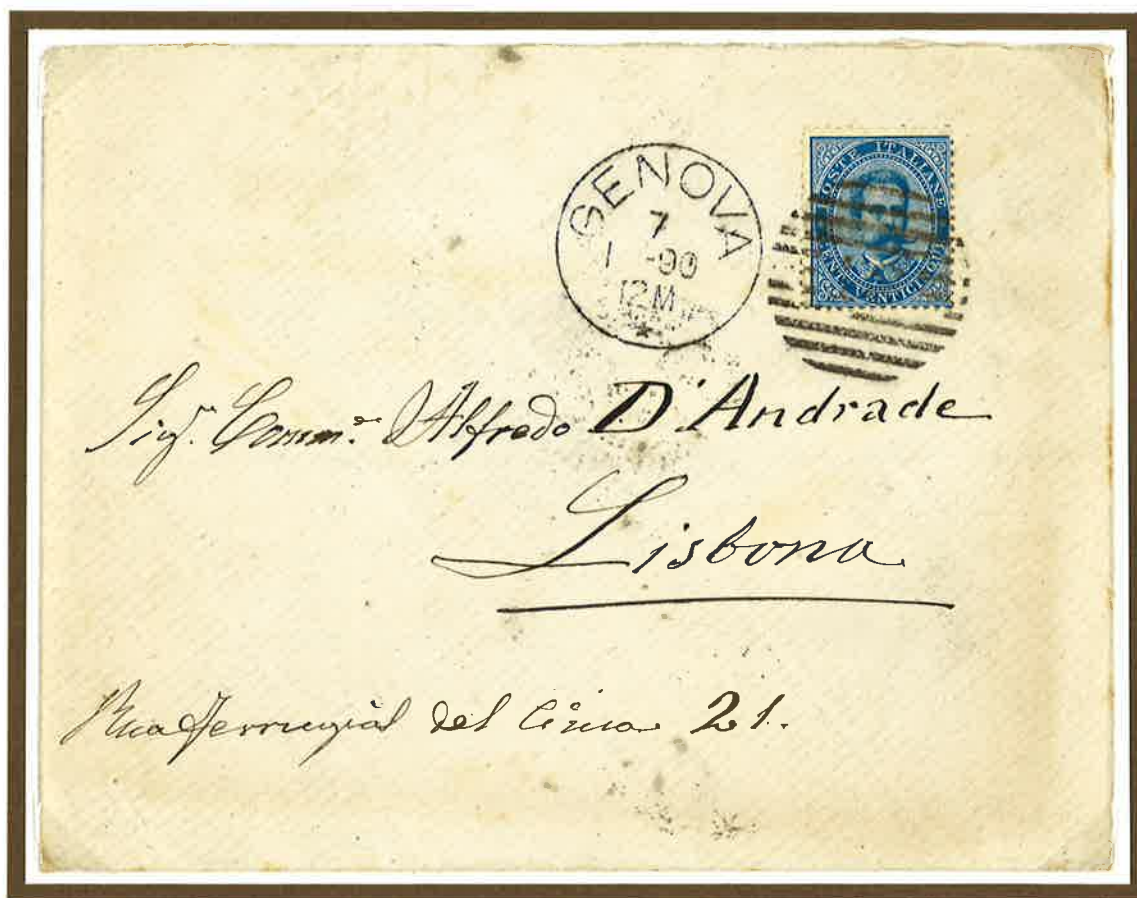 GENOVA
7
1 -90
12M
POSTE ITALIANE
CENT. VENTICINQUE
Sigr. Comm.re Alfredo D'Andrade
Lisbona
Rua Ferregial del Cima 21.